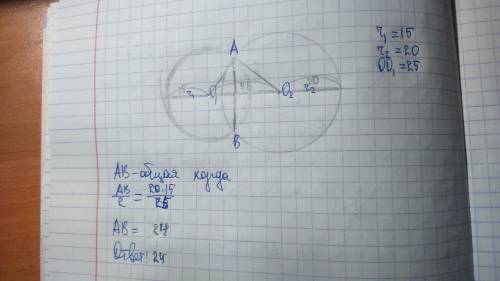 r₁ = 15
r₂ = 20
OO₁ = 25
A
r₁ O₁ 25 O₂ r₂ 20
B
AB - общая хорда
AB/2 = 20·15/25
AB = 24
Ответ: 24